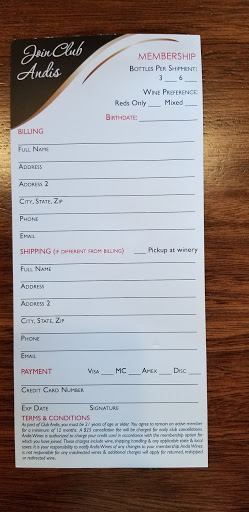 Join Club
Andis
MEMBERSHIP
BOTTLES PER SHIPMENT:
3 ___ 6 ___
WINE PREFERENCE:
Reds Only ___ Mixed ___
BIRTHDATE: ___
BILLING
FULL NAME
ADDRESS
ADDRESS 2
CITY, STATE, ZIP
PHONE
EMAIL
SHIPPING (IF DIFFERENT FROM BILLING) ___ Pickup at winery
FULL NAME
ADDRESS
ADDRESS 2
CITY, STATE, ZIP
PHONE
EMAIL
PAYMENT VISA ___ MC ___ AMEX ___ DISC ___
CREDIT CARD NUMBER
EXP DATE SIGNATURE
TERMS & CONDITIONS
As part of Club Andis, you must be 21 years of age or older. You agree to remain an active member
for a minimum of 12 months. A $25 cancellation fee will be charged for early club cancellations.
Andis Wines is authorized to charge your credit card in accordance with the membership option for
which you have joined. These charges include wine, shipping handling & any applicable state & local
taxes. It is your responsibility to notify Andis Wines of any changes to your membership. Andis Wines
is not responsible for any misdirected wines & additional charges will apply for returned, reshipped
or redirected wine.